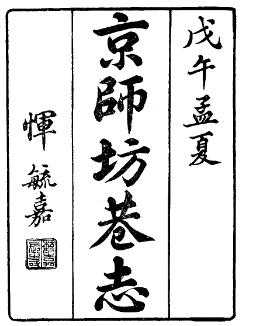 戊午孟夏
京師坊巷志
惲毓嘉